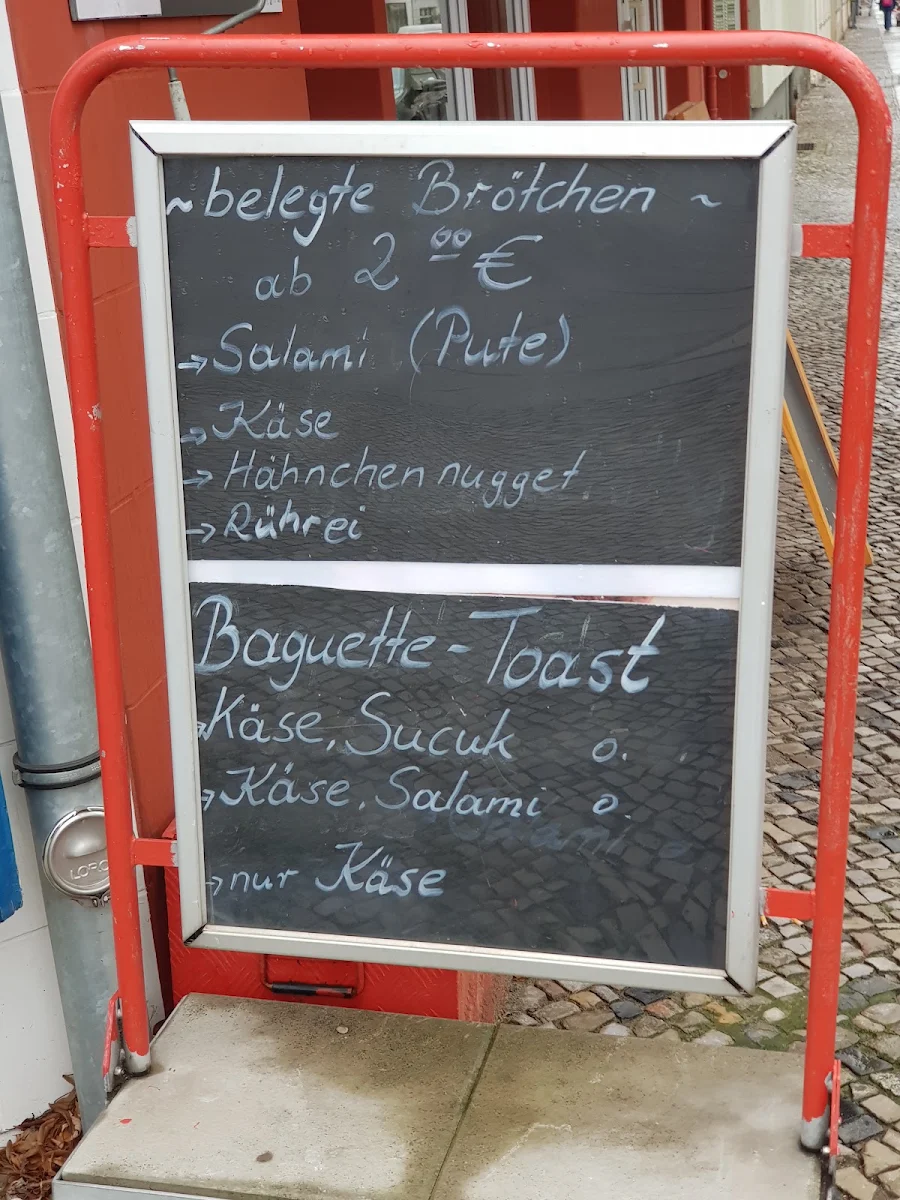 ~ belegte Brötchen ~
ab 2 00 €
→ Salami (Pute)
→ Käse
→ Hähnchennugget
→ Rührei
Baguette-Toast
→ Käse, Sucuk o.
→ Käse, Salami o.
→ nur Käse
LORO